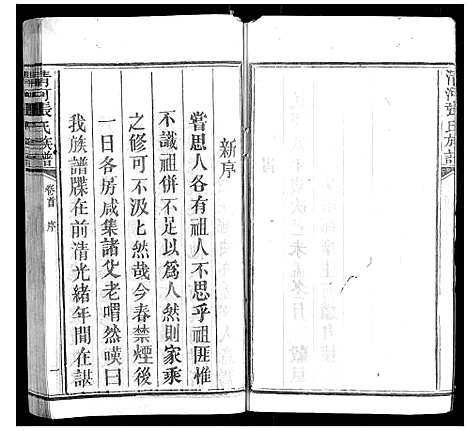 清河張氏族譜
新序
嘗思人各有祖人不思乎祖匪惟
不識祖併不足以爲人然則家乘
之修可不汲上然哉今春禁煙後
一日各房咸集諸父老喟然嘆曰
我族譜牒在前清光緒年間在諶
清河張氏族譜
卷首
序
一